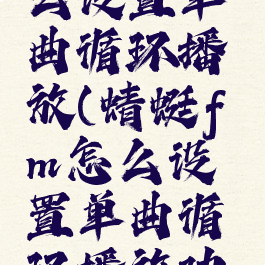 么设置单
曲循环播
放(蜻蜓f
m怎么设
置单曲循
环播放功